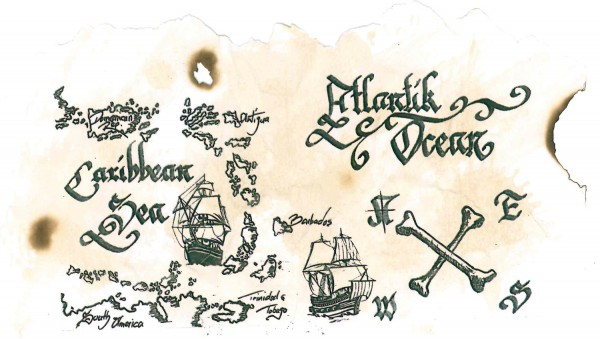 Antigua
Atlantik
Ocean
Caribbean
Sea
Barbados
N
E
W
S
Trinidad &
Tobago
South America